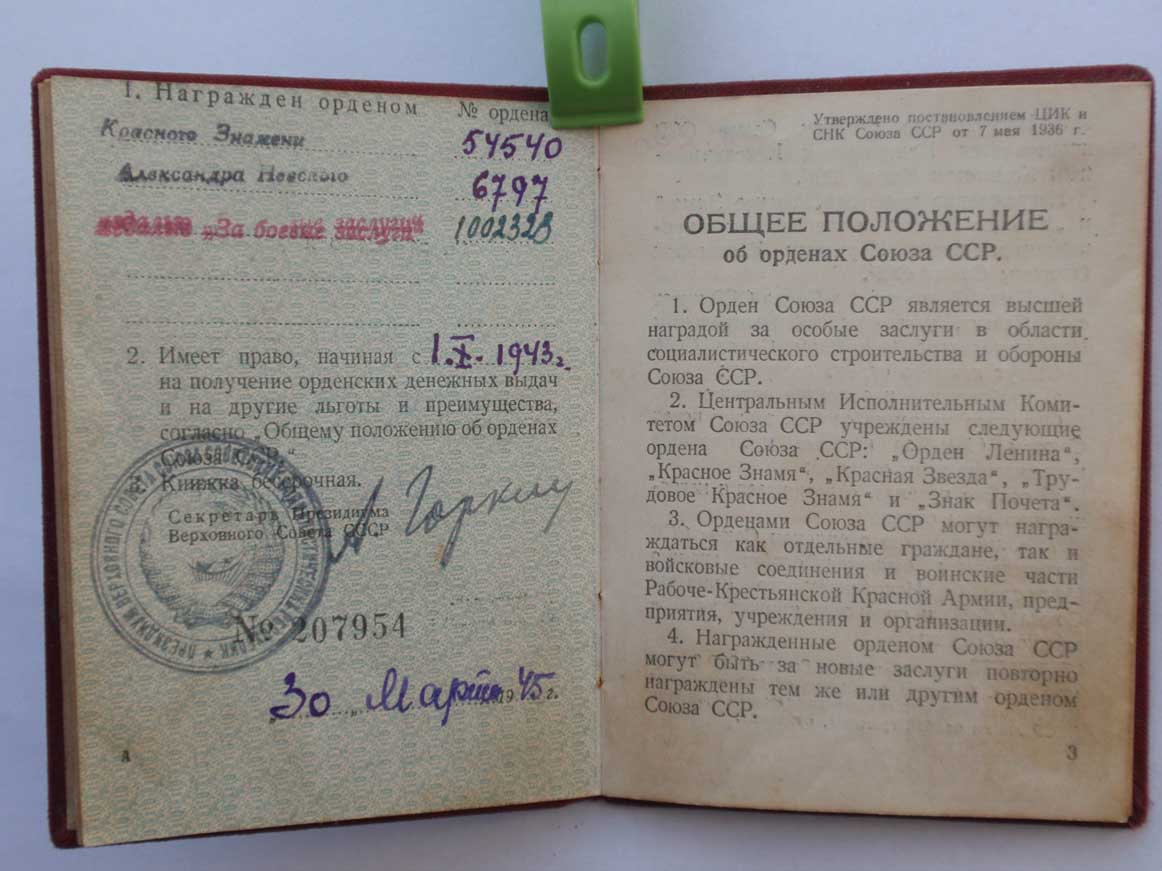 1. Награжден орденом № ордена
Красного Знамени 54540
Александра Невского 6797
медалью „За боевые заслуги“ 1002328
2. Имеет право, начиная с 1.X. 1943г.
на получение орденских денежных выдач
и на другие льготы и преимущества,
согласно „Общему положению об орденах
Союза ССР.“
Книжка бессрочная.
Секретарь Президиума
Верховного Совета СССР
А Горкин
№ 207954
„30 „ Марта 1945 г.
А
Утверждено постановлением ЦИК и
СНК Союза ССР от 7 мая 1936 г.
ОБЩЕЕ ПОЛОЖЕНИЕ
об орденах Союза ССР.
1. Орден Союза ССР является высшей
наградой за особые заслуги в области
социалистического строительства и обороны
Союза ССР.
2. Центральным Исполнительным Коми-
тетом Союза ССР учреждены следующие
ордена Союза ССР: „Орден Ленина“,
„Красное Знамя“, „Красная Звезда“, „Тру-
довое Красное Знамя“ и „Знак Почета“.
3. Орденами Союза ССР могут награ-
ждаться как отдельные граждане, так и
войсковые соединения и воинские части
Рабоче-Крестьянской Красной Армии, пред-
приятия, учреждения и организации.
4. Награжденные орденом Союза ССР
могут быть за новые заслуги повторно
награждены тем же или другим орденом
Союза ССР.
3